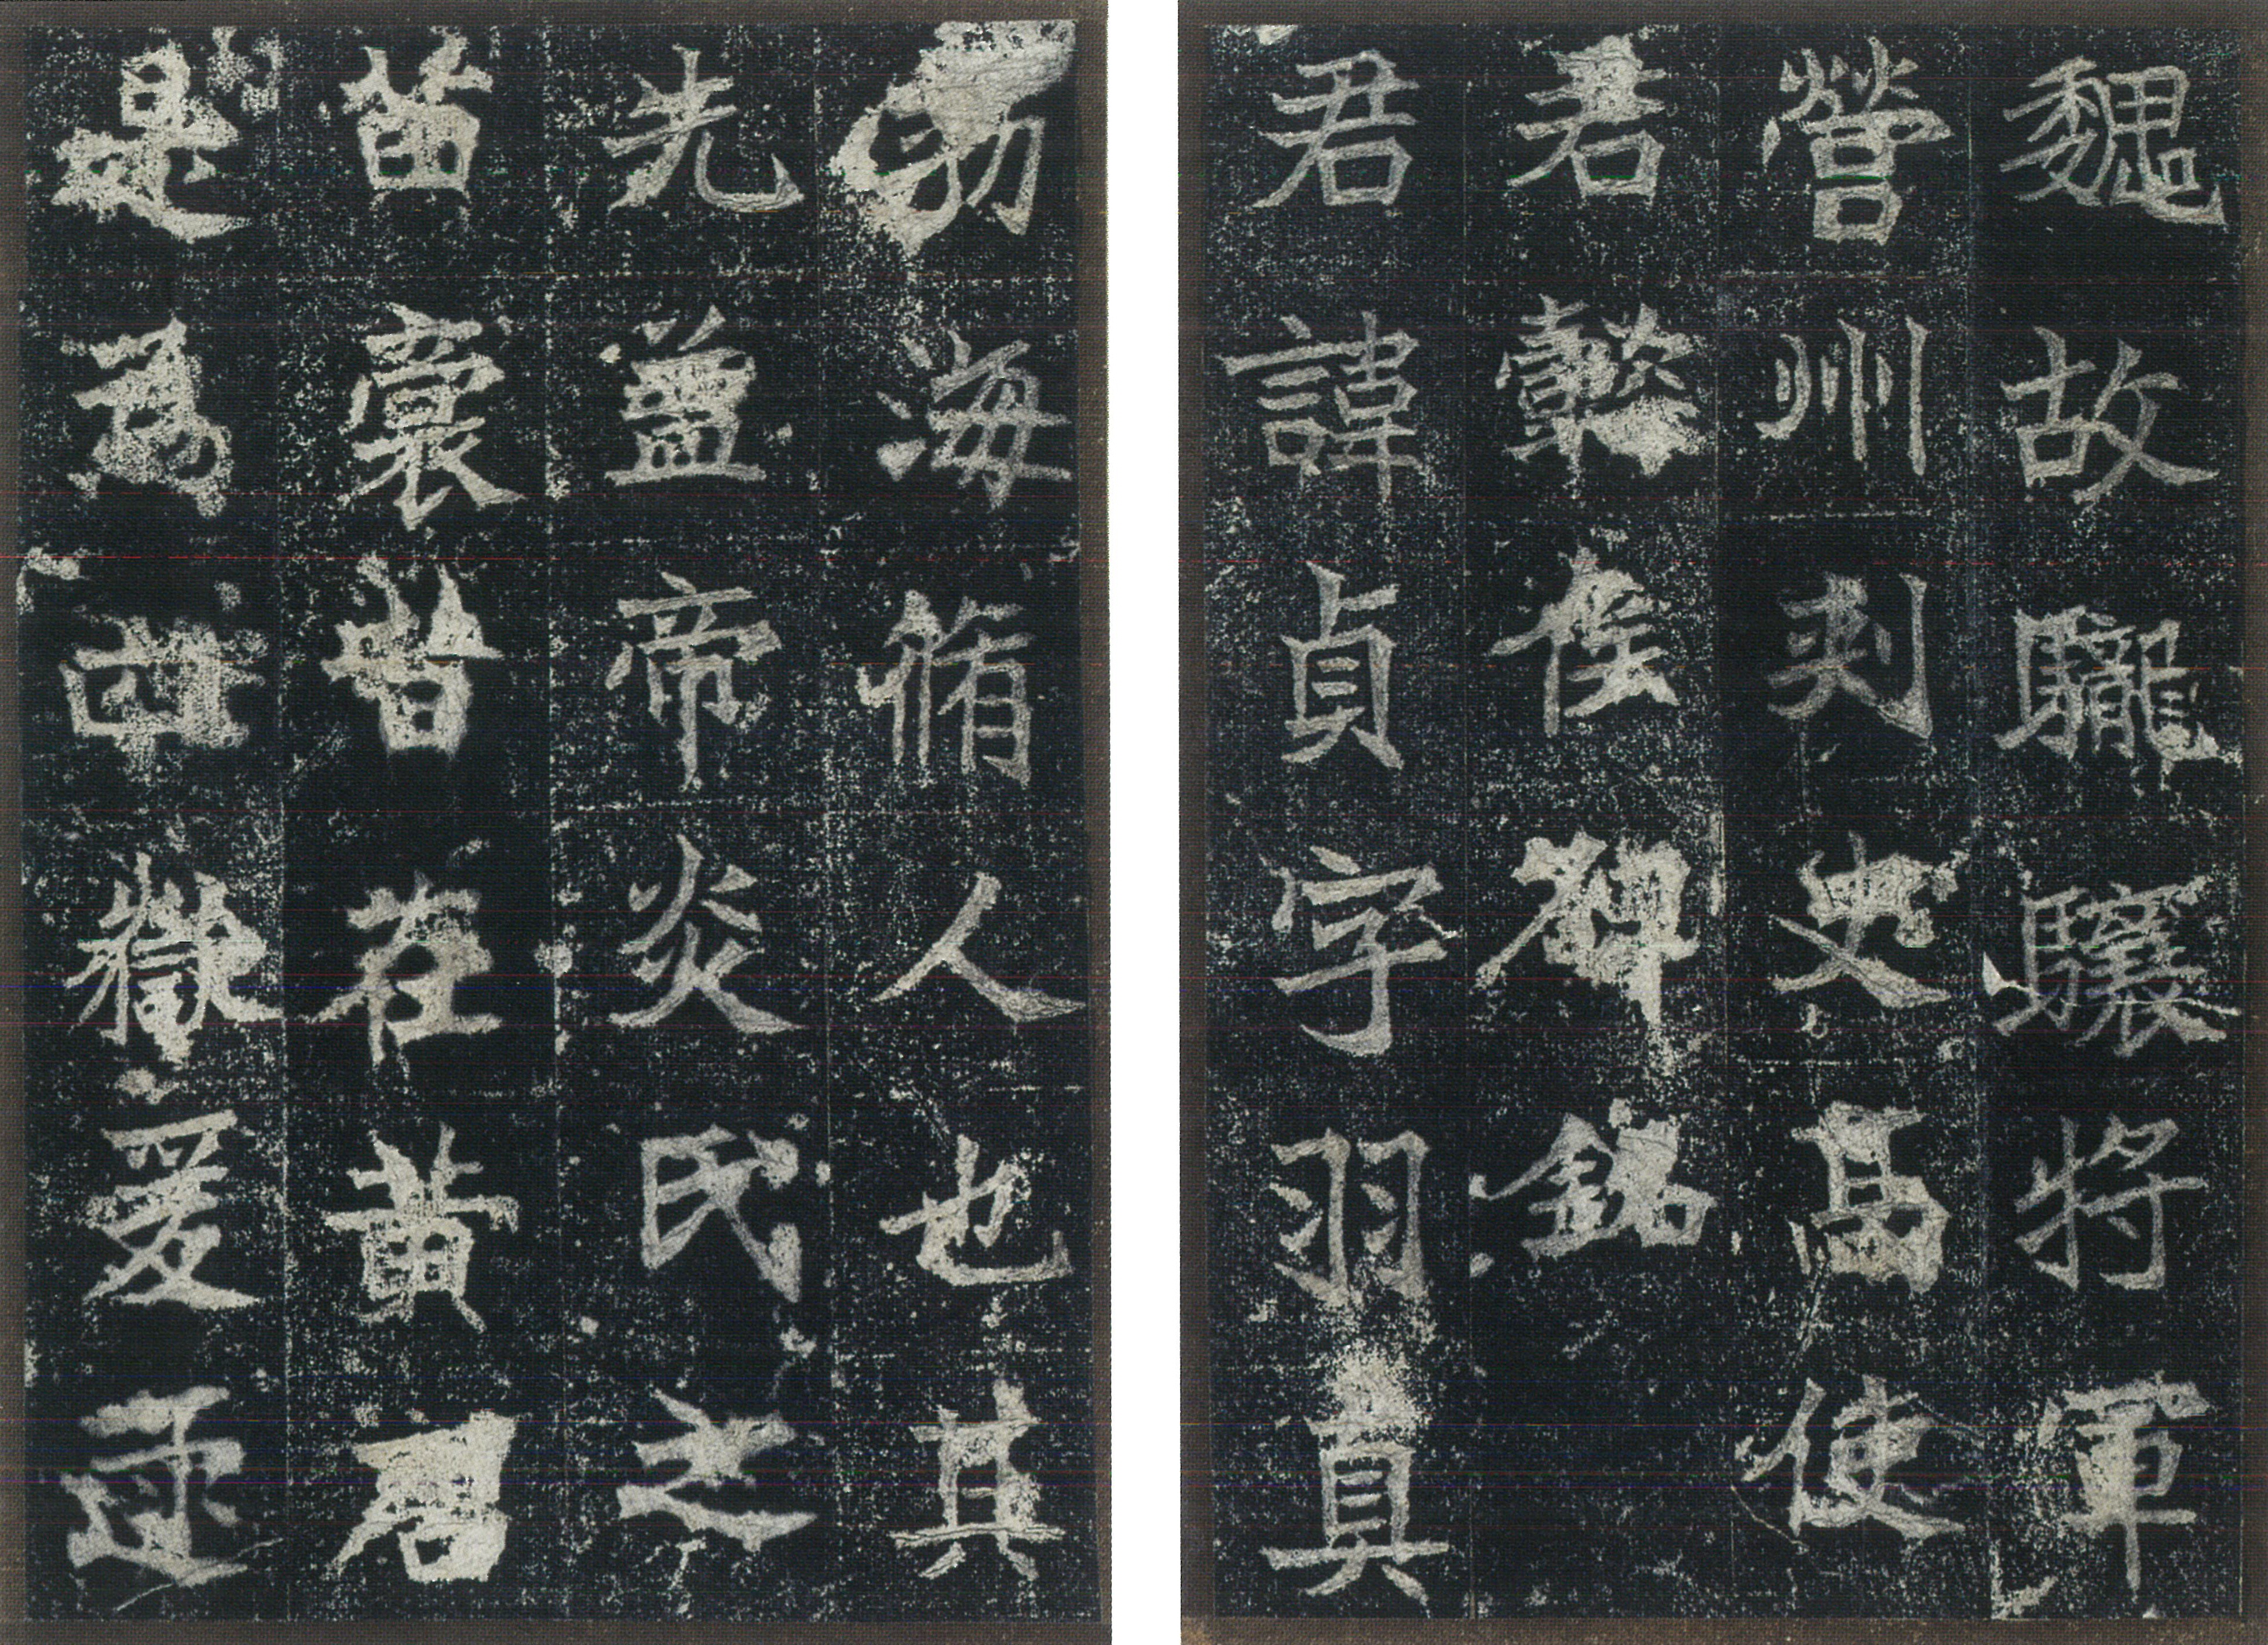 魏故驣驤將軍
營州刾史高使
君懿侯碑銘
君諱貞字羽真
勃海脩人也其
先蓋帝炎氏之
苗裔昔在黃君
是為四嶽爰逮